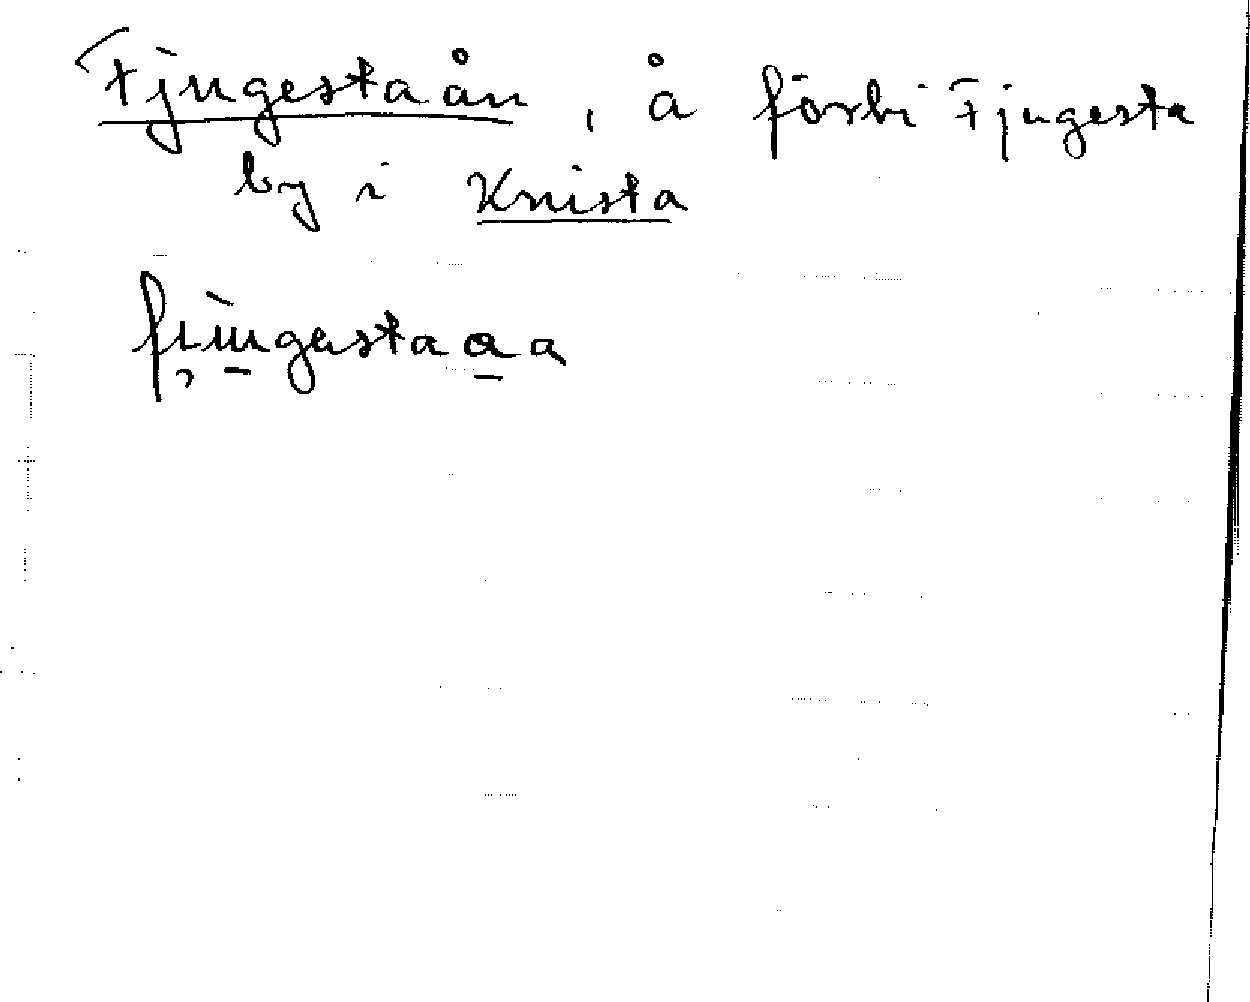 Fjugestaån, å förbi Fjugesta
by i Knista